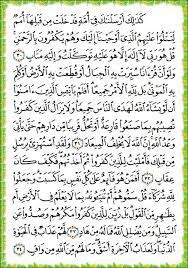 كَذَٰلِكَ أَرْسَلْنَاكَ فِي أُمَّةٍ قَدْ خَلَتْ مِن قَبْلِهَا أُمَمٌ
لِّتَتْلُوَ عَلَيْهِمُ الَّذِي أَوْحَيْنَا إِلَيْكَ وَهُمْ يَكْفُرُونَ بِالرَّحْمَٰنِ
قُلْ هُوَ رَبِّي لَا إِلَٰهَ إِلَّا هُوَ عَلَيْهِ تَوَكَّلْتُ وَإِلَيْهِ مَتَابِ ٣٠
وَلَوْ أَنَّ قُرْآنًا سُيِّرَتْ بِهِ الْجِبَالُ أَوْ قُطِّعَتْ بِهِ الْأَرْضُ أَوْ كُلِّمَ
بِهِ الْمَوْتَىٰ بَل لِّلَّهِ الْأَمْرُ جَمِيعًا أَفَلَمْ يَيْأَسِ الَّذِينَ آمَنُوا
أَن لَّوْ يَشَاءُ اللَّهُ لَهَدَى النَّاسَ جَمِيعًا وَلَا يَزَالُ الَّذِينَ كَفَرُوا
تُصِيبُهُم بِمَا صَنَعُوا قَارِعَةٌ أَوْ تَحُلُّ قَرِيبًا مِّن دَارِهِمْ حَتَّىٰ يَأْتِيَ
وَعْدُ اللَّهِ إِنَّ اللَّهَ لَا يُخْلِفُ الْمِيعَادَ ٣١ وَلَقَدِ اسْتُهْزِئَ
بِرُسُلٍ مِّن قَبْلِكَ فَأَمْلَيْتُ لِلَّذِينَ كَفَرُوا ثُمَّ أَخَذْتُهُمْ فَكَيْفَ كَانَ
عِقَابِ ٣٢ أَفَمَنْ هُوَ قَائِمٌ عَلَىٰ كُلِّ نَفْسٍ بِمَا كَسَبَتْ وَجَعَلُوا
لِلَّهِ شُرَكَاءَ قُلْ سَمُّوهُمْ أَمْ تُنَبِّئُونَهُ بِمَا لَا يَعْلَمُ فِي الْأَرْضِ أَم
بِظَاهِرٍ مِّنَ الْقَوْلِ بَلْ زُيِّنَ لِلَّذِينَ كَفَرُوا مَكْرُهُمْ وَصُدُّوا عَنِ
السَّبِيلِ وَمَن يُضْلِلِ اللَّهُ فَمَا لَهُ مِنْ هَادٍ ٣٣ لَّهُمْ عَذَابٌ فِي الْحَيَاةِ
الدُّنْيَا وَلَعَذَابُ الْآخِرَةِ أَشَقُّ وَمَا لَهُم مِّنَ اللَّهِ مِن وَاقٍ ٣٤